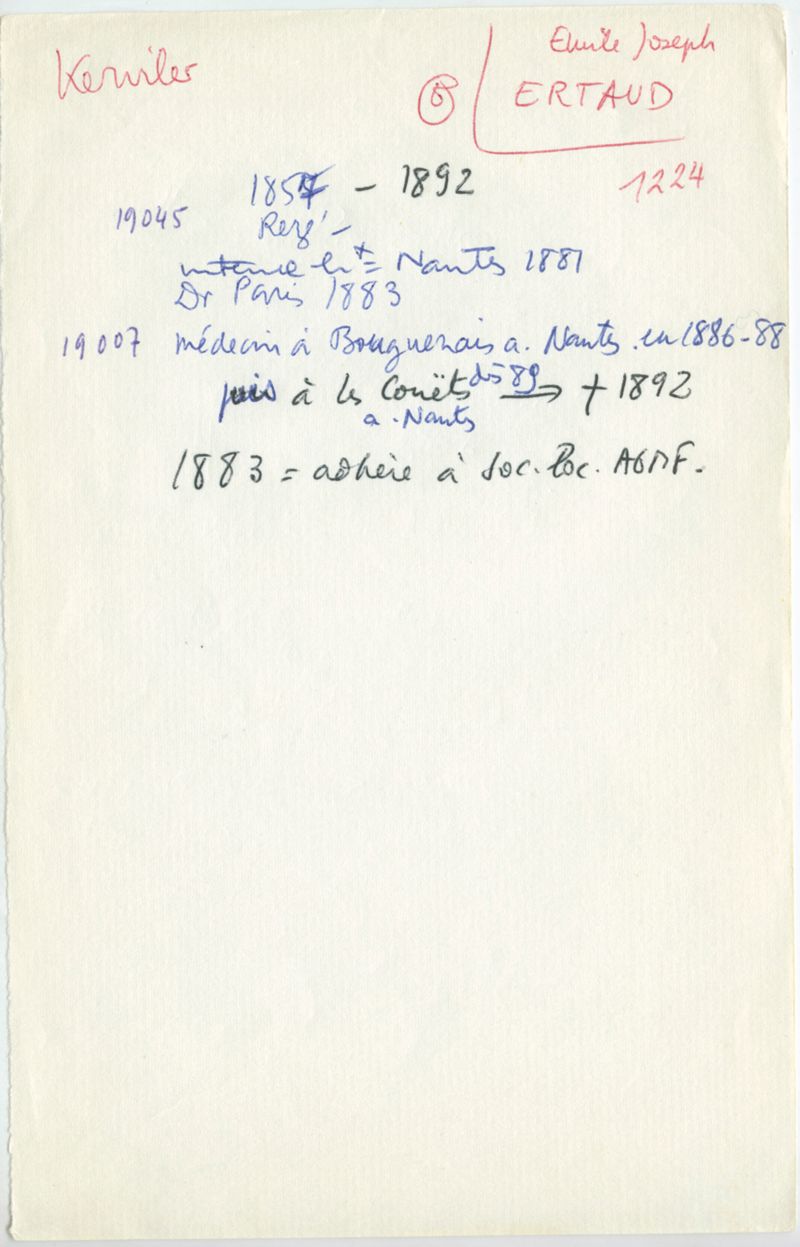 Kerviler
Emile Joseph
ERTAUD
1224
1857 - 1892
19045 Rezé -
interne hx = Nantes 1881
Dr Paris 1883
19007 médecin à Bouguenais a. Nantes. en 1886-88
puis à les Couëts dès 89 → + 1892
a. Nantes
1883 = adhère à Soc. Loc. AGMF.